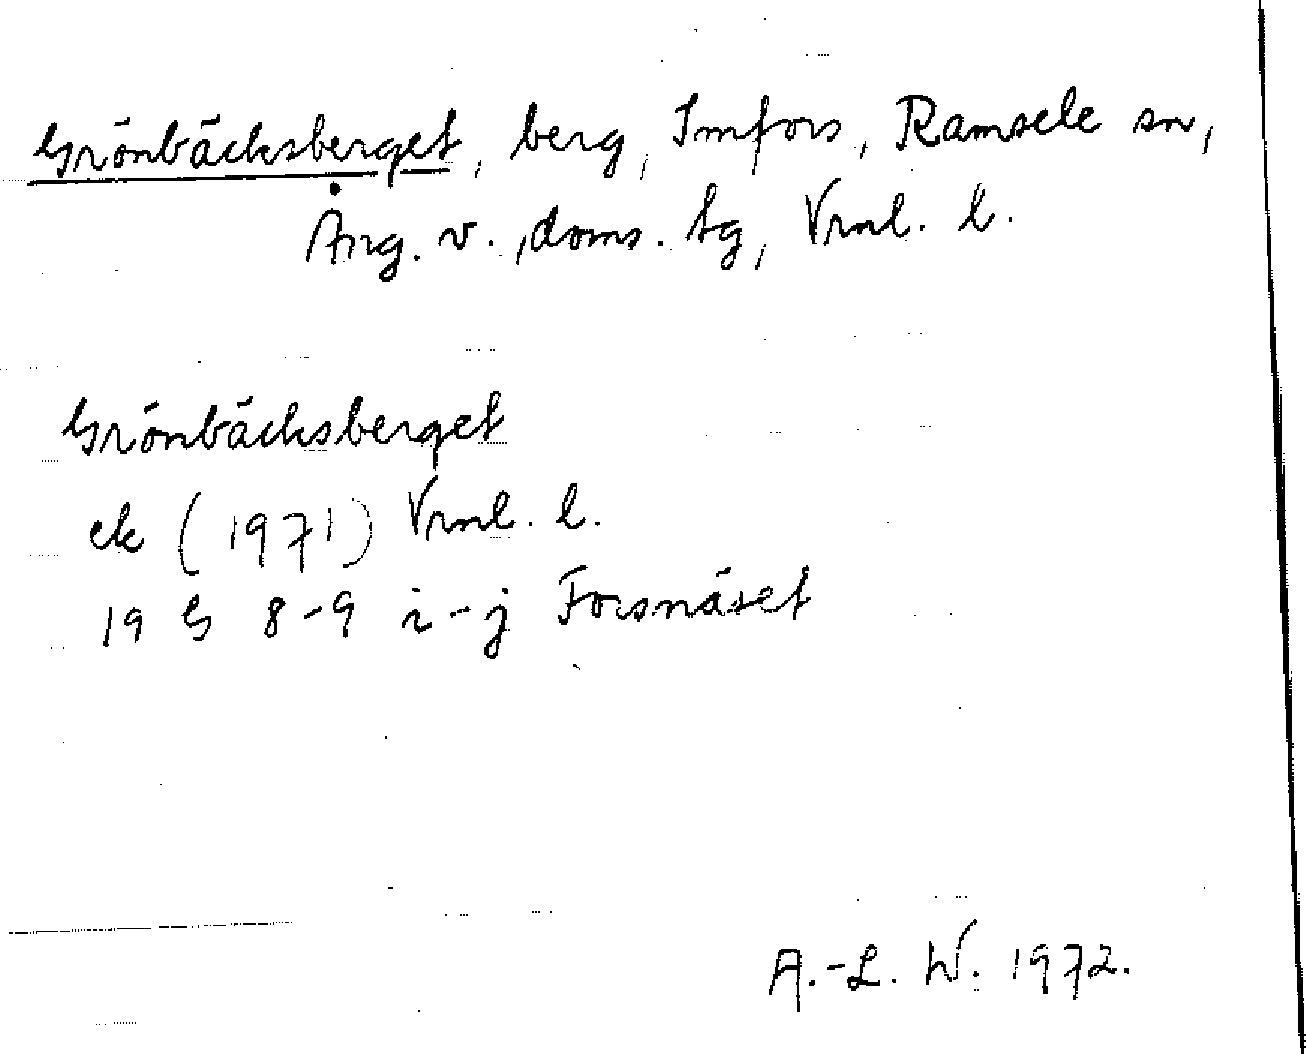 Grönbäcksberget, berg, Imfors, Ramsele sn,
Ång. v., doms. tg, Vrnl. l.
Grönbäcksberget
ek (1971) Vrnl. l.
19 G 8-9 i-j Forsnäset
A.-L. W. 1972.